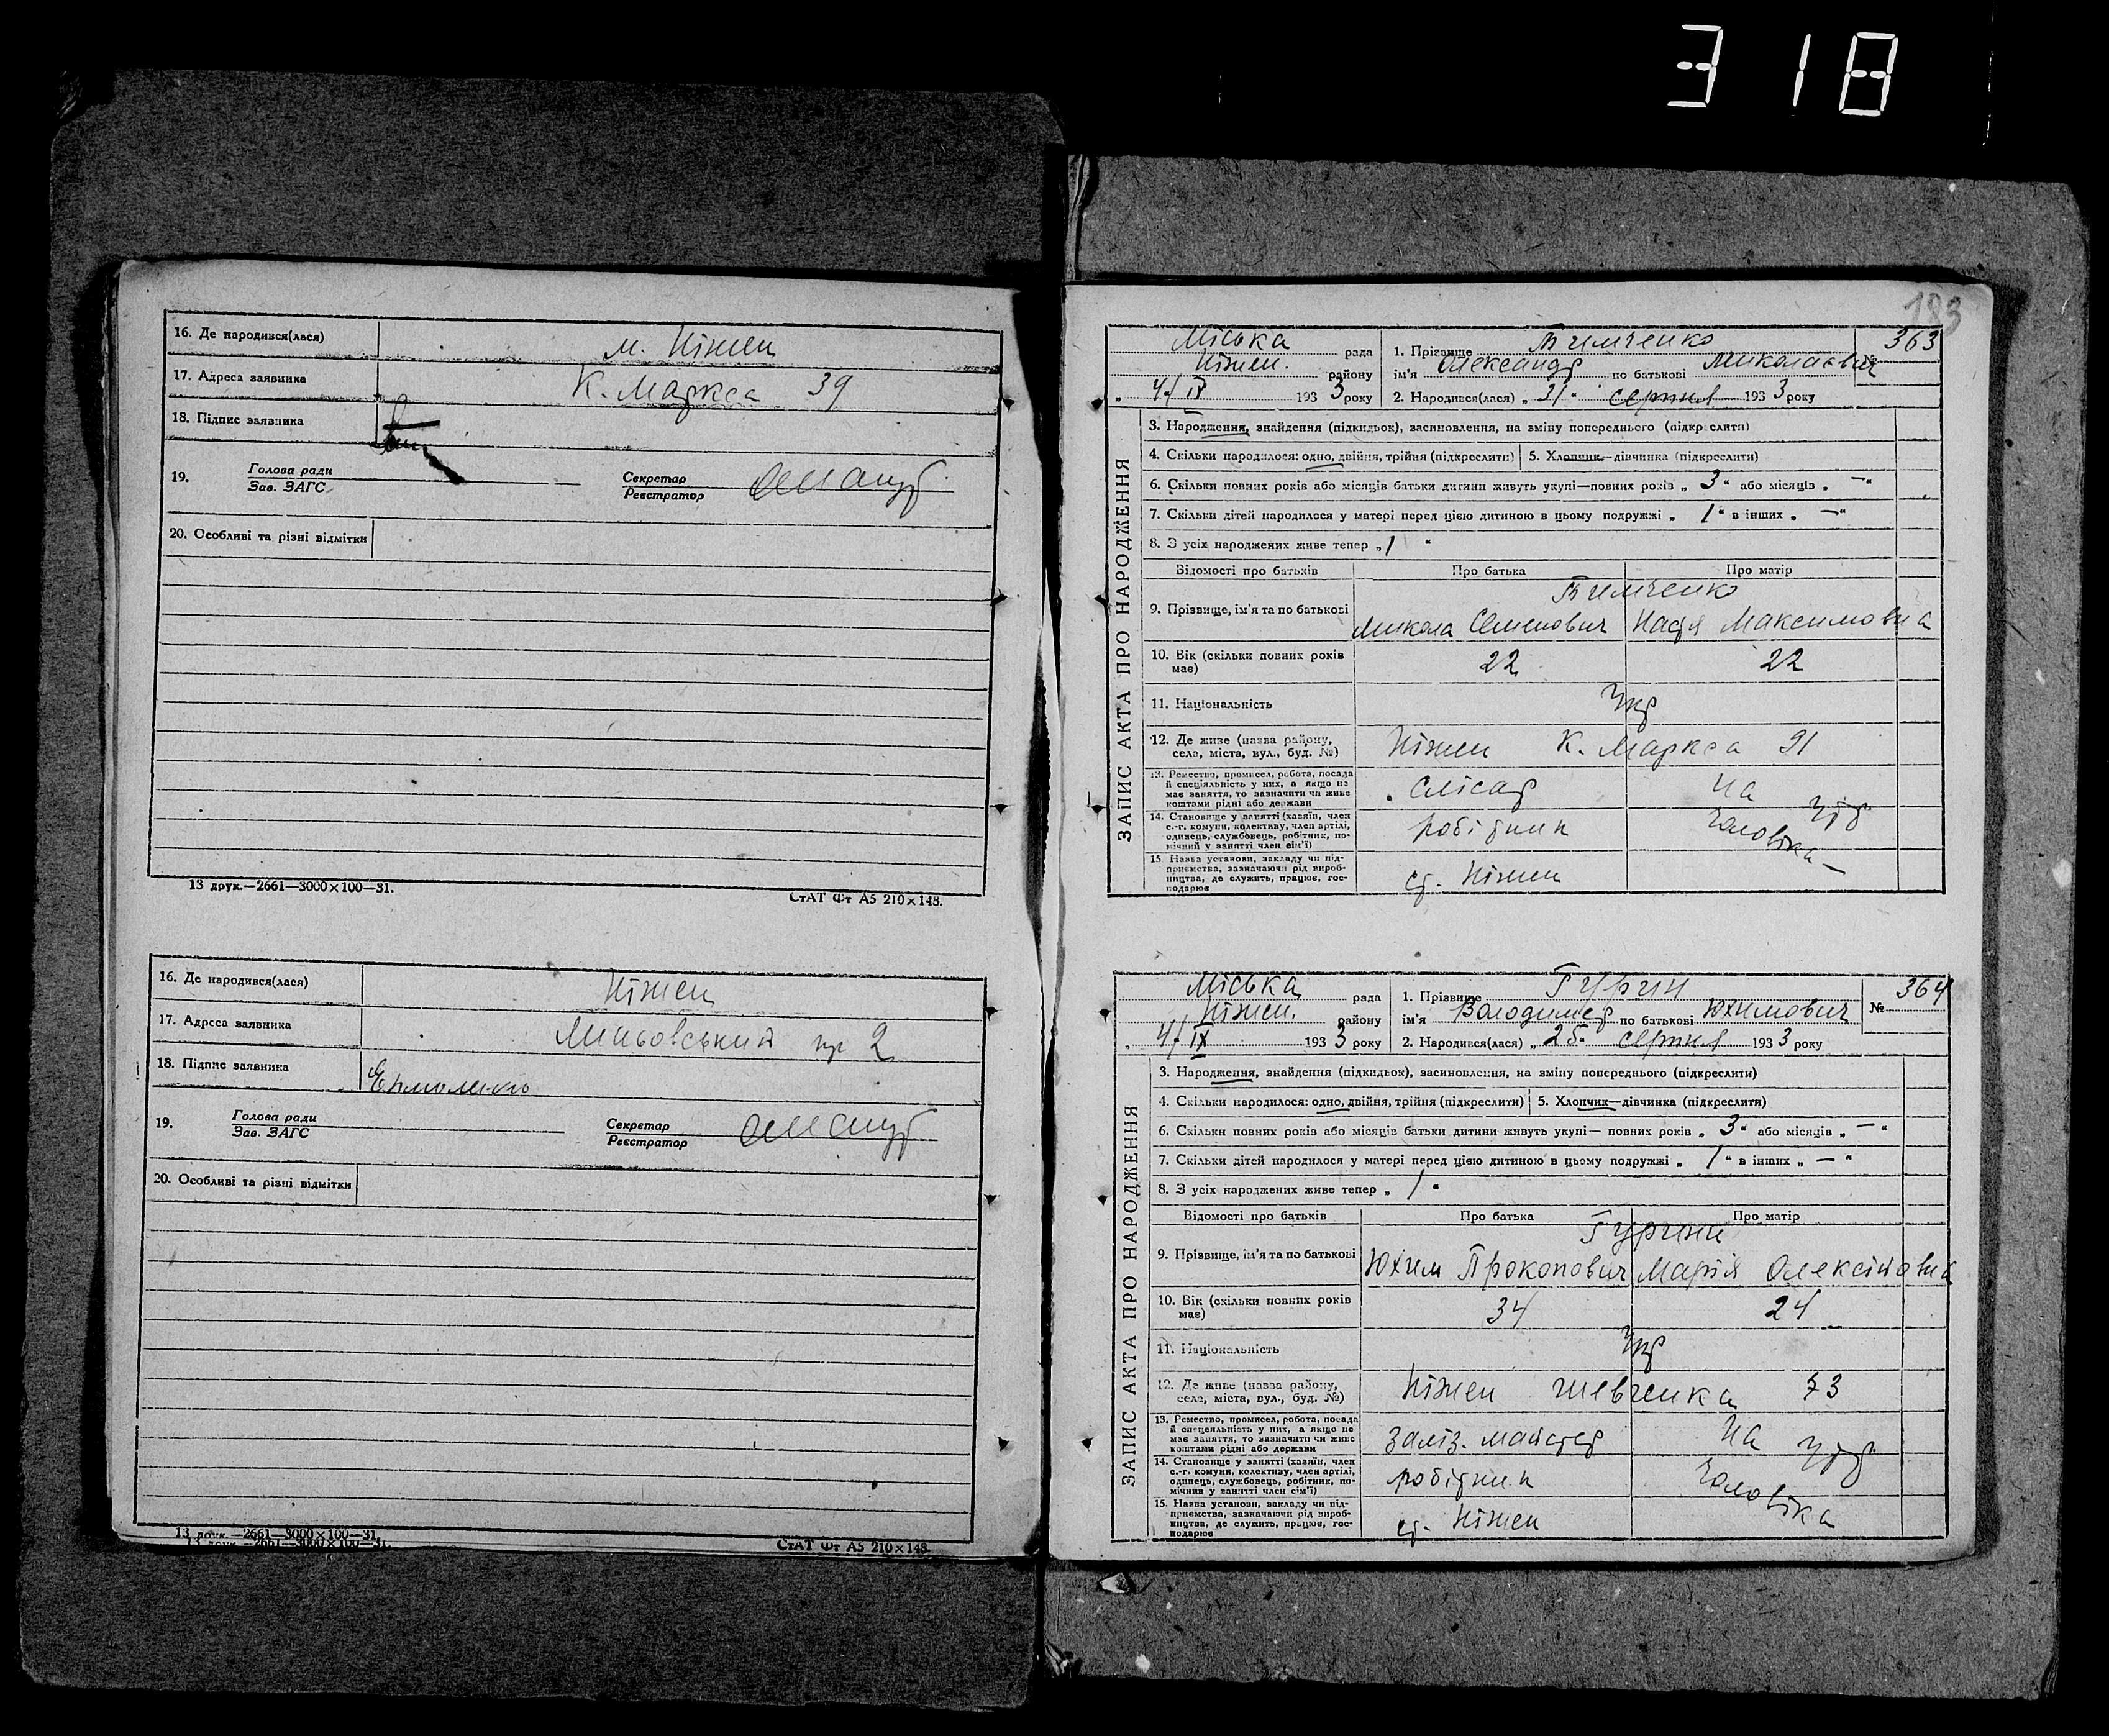 318
16. Де народився(лася) м. Ніжен
17. Адреса заявника К. Маркса 39
18. Підпис заявника
19. Голова ради Секретар
Зав. ЗАГС Реєстратор
20. Особливі та різні відмітки
13 друк.—2661—3000×100—31. СтАТ Фт А5 210×148.
16. Де народився(лася) Ніжен
17. Адреса заявника 2
18. Підпис заявника Єрмоленко
19. Голова ради Секретар
Зав. ЗАГС Реєстратор
20. Особливі та різні відмітки
13 друк.—2661—3000×100—31. СтАТ Фт А5 210×148.
13 друк.—2661—3000×100—31.
183
ЗАПИС АКТА ПРО НАРОДЖЕННЯ
Міська рада 1. Прізвище Тимченко № 363
Ніжен. району ім'я Олександр по батькові Миколаєвич
„ 4/ІХ 1933 року 2. Народився(лася) „31" серпня 1933 року
3. Народження, знайдення (підкидьок), засиновлення, на зміну попереднього (підкреслити)
4. Скільки народилося: одно, двійня, трійня (підкреслити) 5. Хлопчик—дівчинка (підкреслити)
6. Скільки повних років або місяців батьки дитини живуть укупі—повних років „ 3 " або місяців „ — "
7. Скільки дітей народилося у матері перед цією дитиною в цьому подружжі „ 1 " в інших „ — "
8. З усіх народжених живе тепер „ 1 "
Відомості про батьків Про батька Про матір
Тимченко
9. Прізвище, ім'я та по батькові Микола Семенович Надія Максимовна
10. Вік (скільки повних років має) 22 22
11. Національність Укр
12. Де живе (назва району, села, міста, вул., буд. №) Ніжен К. Маркса 91
13. Ремество, промисел, робота, посада й спеціяльність у них, а якщо не має заняття, то зазначити чи живе коштами рідні або держави слісар На утр
14. Становище у занятті (хазяїн, член с.-г. комуни, колективу, член артілі, одинець, службовець, робітник, помічний у занятті член сім'ї) робітник чоловіка
15. Назва установи, закладу чи підприємства, зазначаючи рід виробництва, де служить, працює, господарює ст. Ніжен
ЗАПИС АКТА ПРО НАРОДЖЕННЯ
Міська рада 1. Прізвище Гурин № 364
Ніжен. району ім'я Володимер по батькові Юхимович
„ 4/ІХ 1933 року 2. Народився(лася) „25" серпня 1933 року
3. Народження, знайдення (підкидьок), засиновлення, на зміну попереднього (підкреслити)
4. Скільки народилося: одно, двійня, трійня (підкреслити) 5. Хлопчик—дівчинка (підкреслити)
6. Скільки повних років або місяців батьки дитини живуть укупі— повних років „ 3 " або місяців „ — "
7. Скільки дітей народилося у матері перед цією дитиною в цьому подружжі „ 1 " в інших „ — "
8. З усіх народжених живе тепер „ 1 "
Відомості про батьків Про батька Про матір
Гурини
9. Прізвище, ім'я та по батькові Юхим Прокопович Марія Олексіївна
10. Вік (скільки повних років має) 34 24
11. Національність Укр
12. Де живе (назва району, села, міста, вул., буд. №) Ніжен Шевченка 73
13. Ремество, промисел, робота, посада й спецеяльність у них, а якщо не має заняття, то зазначити чи живе коштами рідні або держави заліз. майстер На утр
14. Становище у занятті (хазяїн, член с.-г. комуни, колективу, член артілі, одинець, службовець, робітник, помічник у занятті член сім'ї) робітник чоловіка
15. Назва установи, закладу чи підприємства, зазначаючи рід виробництва, де служить, працює, господарює ст. Ніжен